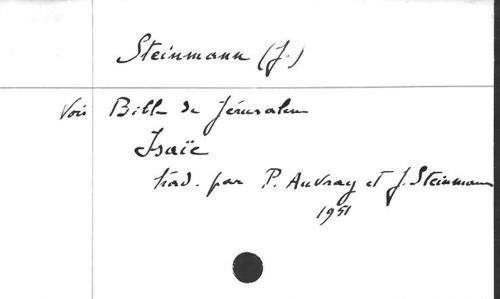 Steinmann (J.)
Voir Bible de Jérusalem
Isaïe
trad. par P. Auvray et J. Steinmann
1951